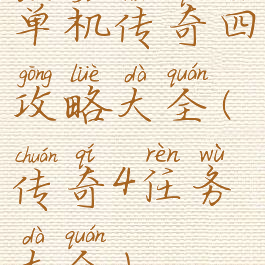 单机传奇四
gōng lüè dà quán
攻略大全(
chuán qí rèn wù
传奇4任务
dà quán
大全)